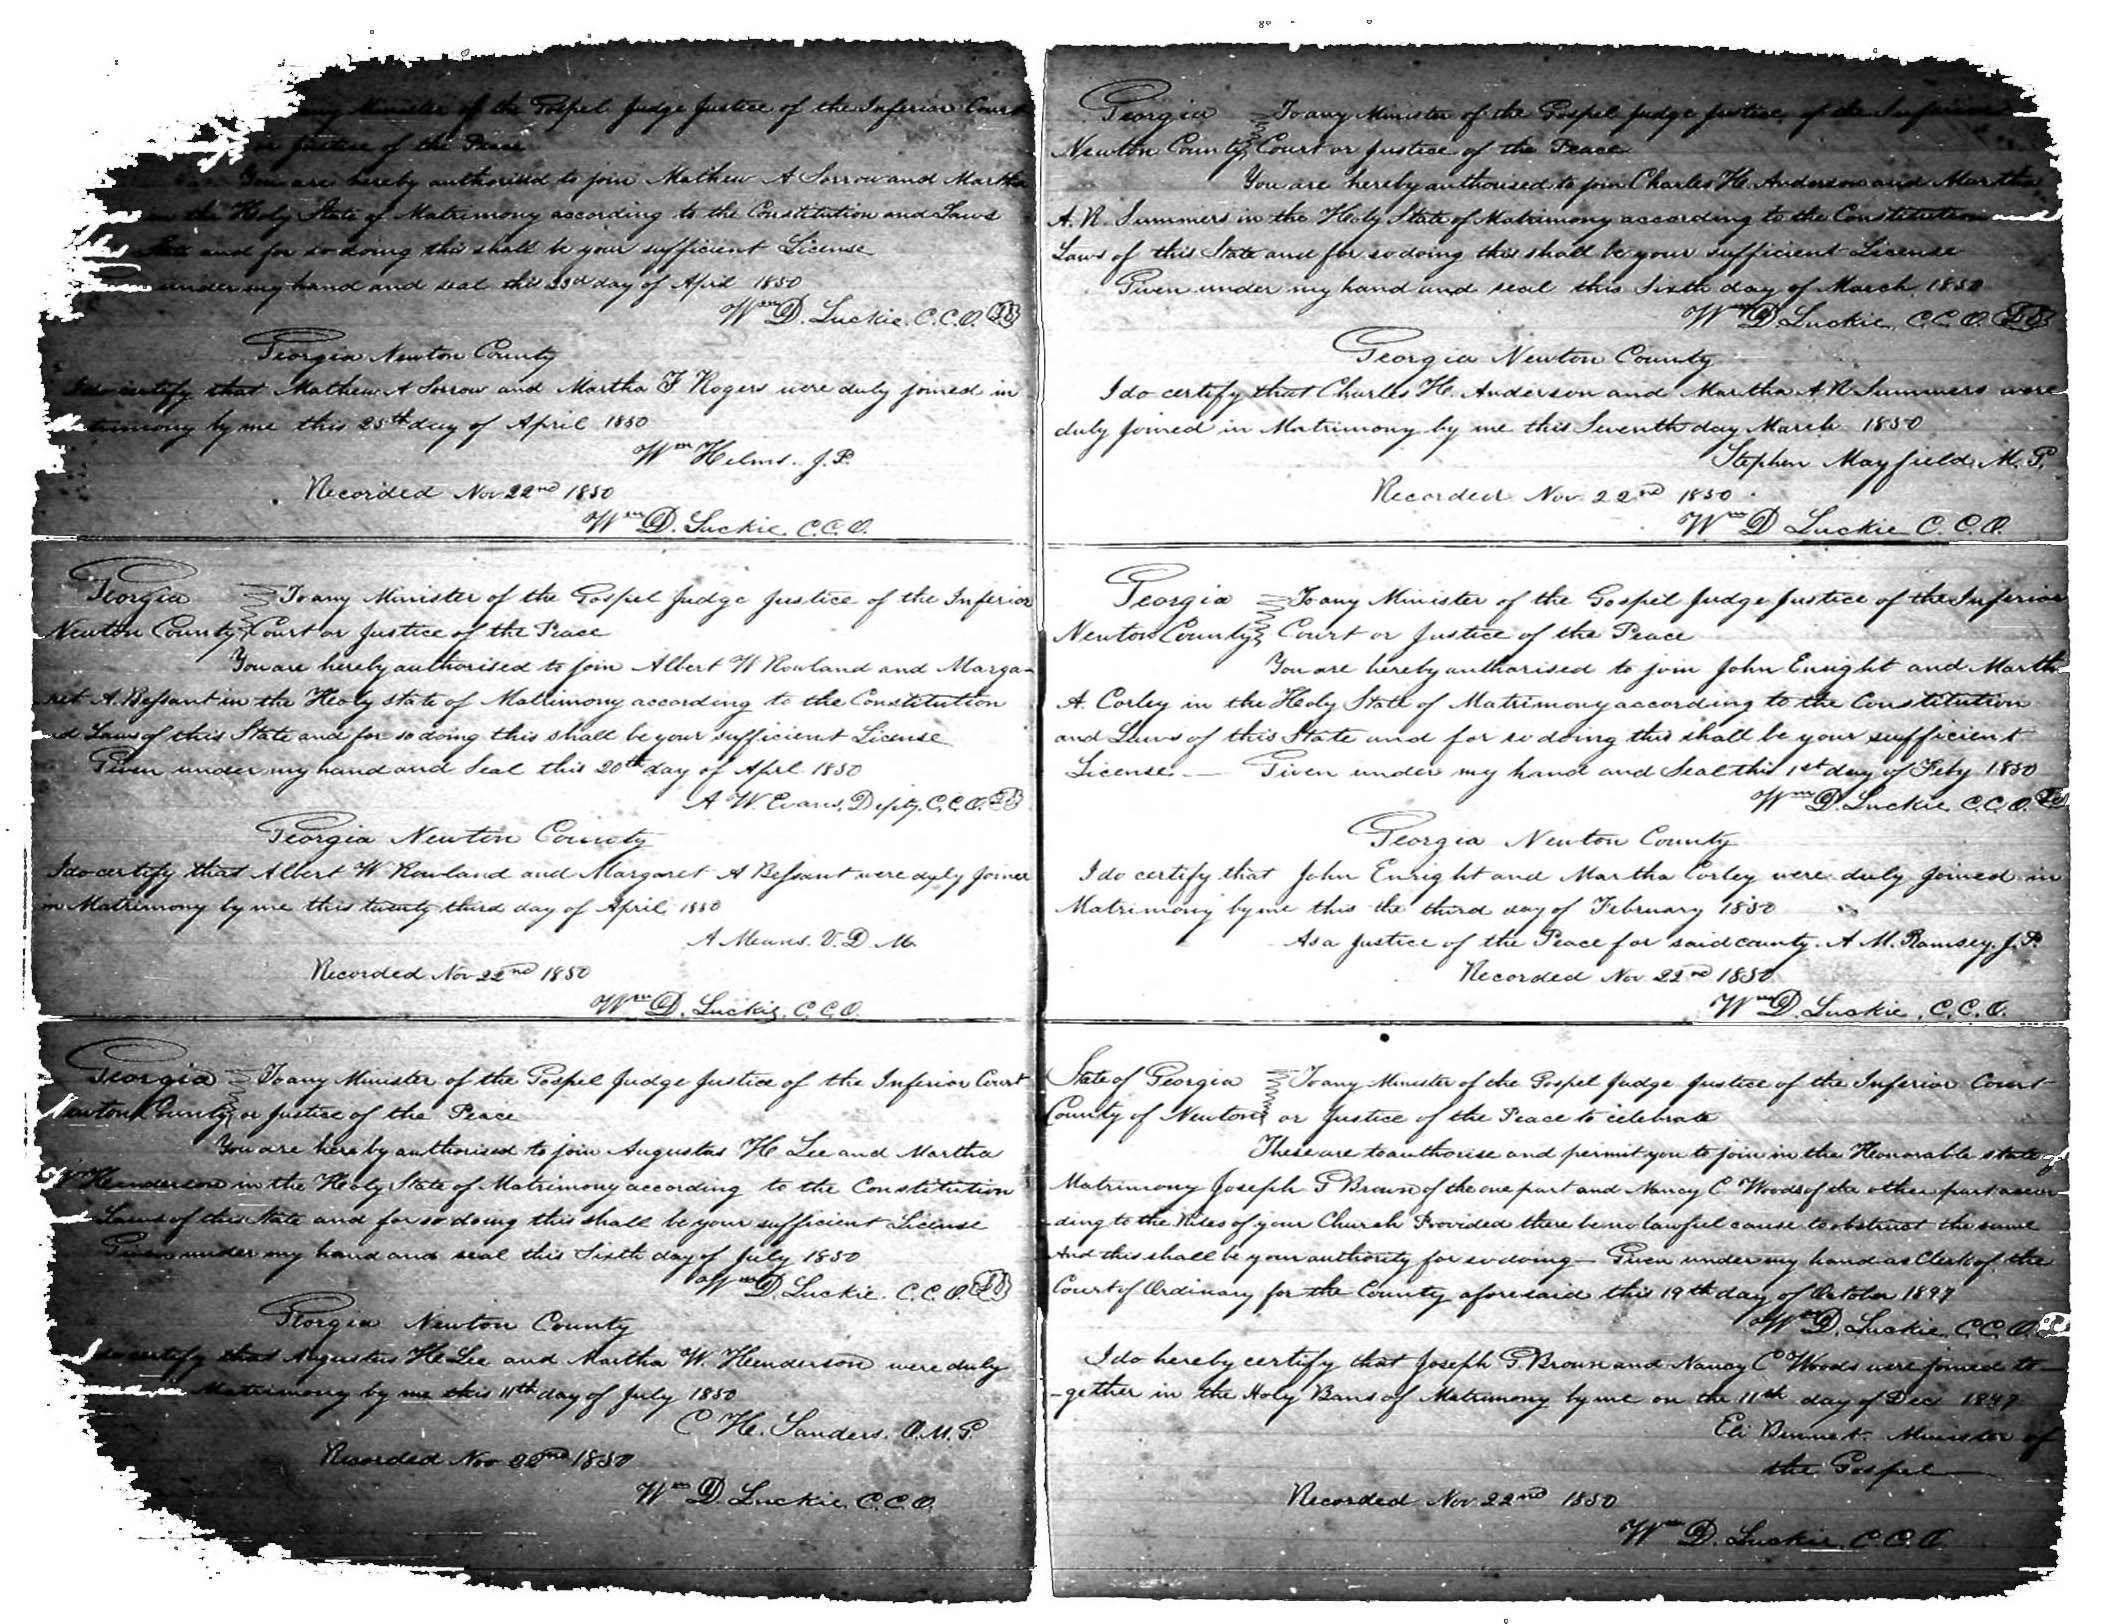 my Minister of the Gospel Judge Justice of the Inferior Court
or Justice of the Peace
You are hereby authorised to join Mathew A Sorrow and Martha
in the Holy State of Matrimony according to the Constitution and Laws
State and for so doing this shall be your sufficient License
under my hand and seal this 23rd day of April 1850
Wm D. Luckie. C.C.O. LS
Georgia Newton County
I do certify that Mathew A Sorrow and Martha F Rogers were duly joined in
Matrimony by me this 25th day of April 1850
Wm Helms. J.P.
Recorded Nov 22nd 1850
Wm D. Luckie. C.C.O.
Georgia To any Minister of the Gospel Judge Justice of the Inferior
Newton County Court or Justice of the Peace
You are hereby authorised to join Albert W Rowland and Marga-
ret A. Bessant in the Holy state of Matrimony according to the Constitution
and Laws of this State and for so doing this shall be your sufficient License
Given under my hand and Seal this 20th day of Aprl 1850
A W. Evans, Deputy. C.C.O. LS
Georgia Newton County
I do certify that Albert W Rowland and Margaret A Bessant were duly joined
in Matrimony by me this twenty third day of April 1850
A Means. V. D. M.
Recorded Nov 22nd 1850
Wm D. Luckie. C.C.O.
Georgia To any Minister of the Gospel Judge Justice of the Inferior Court
Newton County or Justice of the Peace
You are hereby authorised to join Augustus H Lee and Martha
W Henderson in the Holy State of Matrimony according to the Constitution
Laws of this State and for so doing this shall be your sufficient License
Given under my hand and seal this Sixth day of July 1850
Wm D. Luckie. C.C.O. LS
Georgia Newton County
I do certify that Augustus H Lee and Martha W. Henderson were duly
joined in Matrimony by me this 11th day of July 1850
C H. Sanders. O.M.G.
Recorded Nov 22nd 1850
Wm D. Luckie. C.C.O.
Georgia To any Minister of the Gospel Judge Justice of the Inferior
Newton County Court or Justice of the Peace
You are hereby authorised to join Charles H. Anderson and Martha
A. R. Summers in the Holy State of Matrimony according to the Constitution and
Laws of this State and for so doing this shall be your sufficient License
Given under my hand and seal this Sixth day of March 1850
Wm D Luckie, C.C.O. LS
Georgia Newton County
I do certify that Charles H. Anderson and Martha A R Summers were
duly joined in Matrimony by me this Seventh day March 1850
Stephen Mayfield, M. G.
Recorded Nov 22nd 1850
Wm D Luckie C.C.O.
Georgia To any Minister of the Gospel Judge Justice of the Inferior
Newton County Court or Justice of the Peace
You are hereby authorised to join John Enright and Martha
A. Corley in the Holy State of Matrimony according to the Constitution
and Laws of this State and for so doing this shall be your sufficient
License. — Given under my hand and Seal this 1st day of Feby 1850
Wm D. Luckie C.C.O. LS
Georgia Newton County
I do certify that John Enright and Martha Corley were duly joined in
Matrimony by me this the third day of February 1850
As a Justice of the Peace for said county. A M. Ramsey. J.P.
Recorded Nov 22nd 1850
Wm D. Luckie, C.C.O.
State of Georgia To any Minister of the Gospel Judge Justice of the Inferior Court
County of Newton or Justice of the Peace to celebrate
These are to authorise and permit you to join in the Honorable state of
Matrimony Joseph G Brown of the one part and Nancy C Woods of the other part accor
-ding to the Rites of your Church Provided there be no lawful cause to obstruct the same
And this shall be your authority for so doing — Given under my hand as Clerk of the
Court of Ordinary for the County aforesaid this 19th day of October 1847
Wm D. Luckie C.C.O. LS
I do hereby certify that Joseph G Brown and Nancy C Woods were joined to-
-gether in the Holy Bans of Matrimony by me on the 11th day of Dec 1847
Eli Bennet. Minister of
the Gospel
Recorded Nov 22nd 1850
Wm D. Luckie. C.C.O.